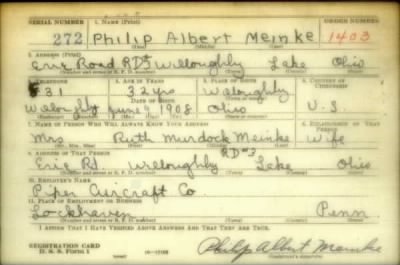 SERIAL NUMBER 1. NAME (Print) ORDER NUMBER
272 Philip Albert Meinke 1403
(First) (Middle) (Last)
2. ADDRESS (Print)
Erie Road RD3 Willoughby Lake Ohio
3. TELEPHONE 4. AGE IN YEARS 5. PLACE OF BIRTH 6. COUNTRY OF CITIZENSHIP
531 32 yrs Willoughby
DATE OF BIRTH
Willoughby June 9 1908 Ohio U.S.
7. NAME OF PERSON WHO WILL ALWAYS KNOW YOUR ADDRESS 8. RELATIONSHIP OF THAT PERSON
Mrs Ruth Murdock Meinke Wife
9. ADDRESS OF THAT PERSON RD #3
Erie Rd Willoughby Lake Ohio
10. EMPLOYER'S NAME
Piper Aircraft Co
11. PLACE OF EMPLOYMENT OR BUSINESS
Lockhaven Penn
I AFFIRM THAT I HAVE VERIFIED ABOVE ANSWERS AND THAT THEY ARE TRUE.
REGISTRATION CARD
D. S. S. Form 1 Philip Albert Meinke